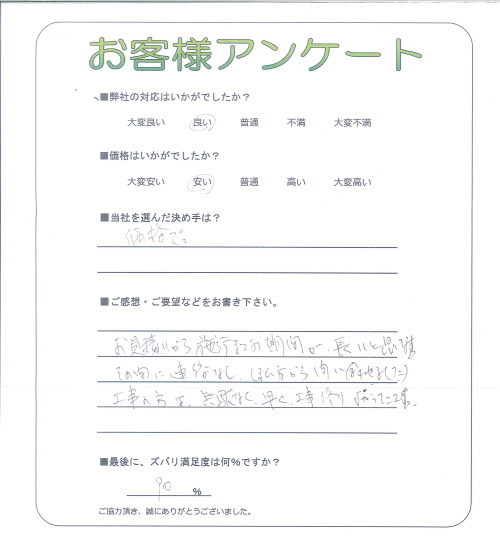 お客様アンケート
■弊社の対応はいかがでしたか？
大変良い 良い 普通 不満 大変不満
■価格はいかがでしたか？
大変安い 安い 普通 高い 大変高い
■当社を選んだ決め手は？
価格で。
■ご感想・ご要望などをお書き下さい。
お見積りから施行までの期間が、長いと感じ
その間に連絡なし、
工事の方は、無駄なく、早く、工事
■最後に、ズバリ満足度は何%ですか？
90 %
ご協力頂き、誠にありがとうございました。